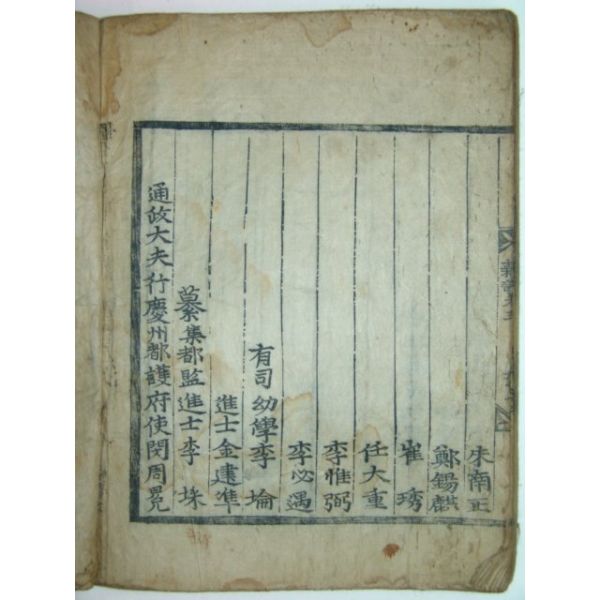 朱南正
鄭錫麒
崔琇
任大重
李惟弼
李必遇
有司幼學李
進士金建準
纂集都監進士李埰
通政大夫行慶州都護府使閔周冕